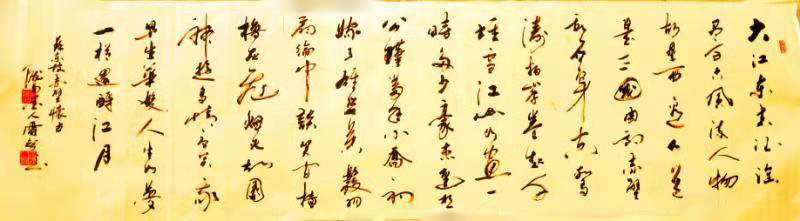 大江东去浪淘
尽千古风流人物
故垒西边人道
是三国周郎赤壁
乱石穿空惊
涛拍岸卷起千
堆雪江山如画一
时多少豪杰遥想
公瑾当年小乔初
嫁了雄姿英发羽
扇纶巾谈笑间樯
橹灰飞烟灭故国
神游多情应笑我
早生华发人生如梦
一樽还酹江月
赤壁怀古